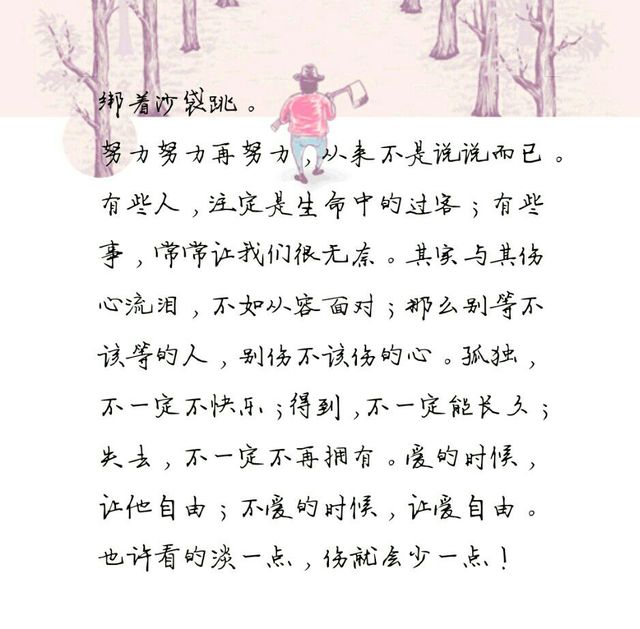 绑着沙袋跳。
努力努力再努力，从来不是说说而已。
有些人，注定是生命中的过客；有些
事，常常让我们很无奈。其实与其伤
心流泪，不如从容面对；那么别等不
该等的人，别伤不该伤的心。孤独，
不一定不快乐；得到，不一定能长久；
失去，不一定不再拥有。爱的时候，
让他自由；不爱的时候，让爱自由。
也许看的淡一点，伤就会少一点！